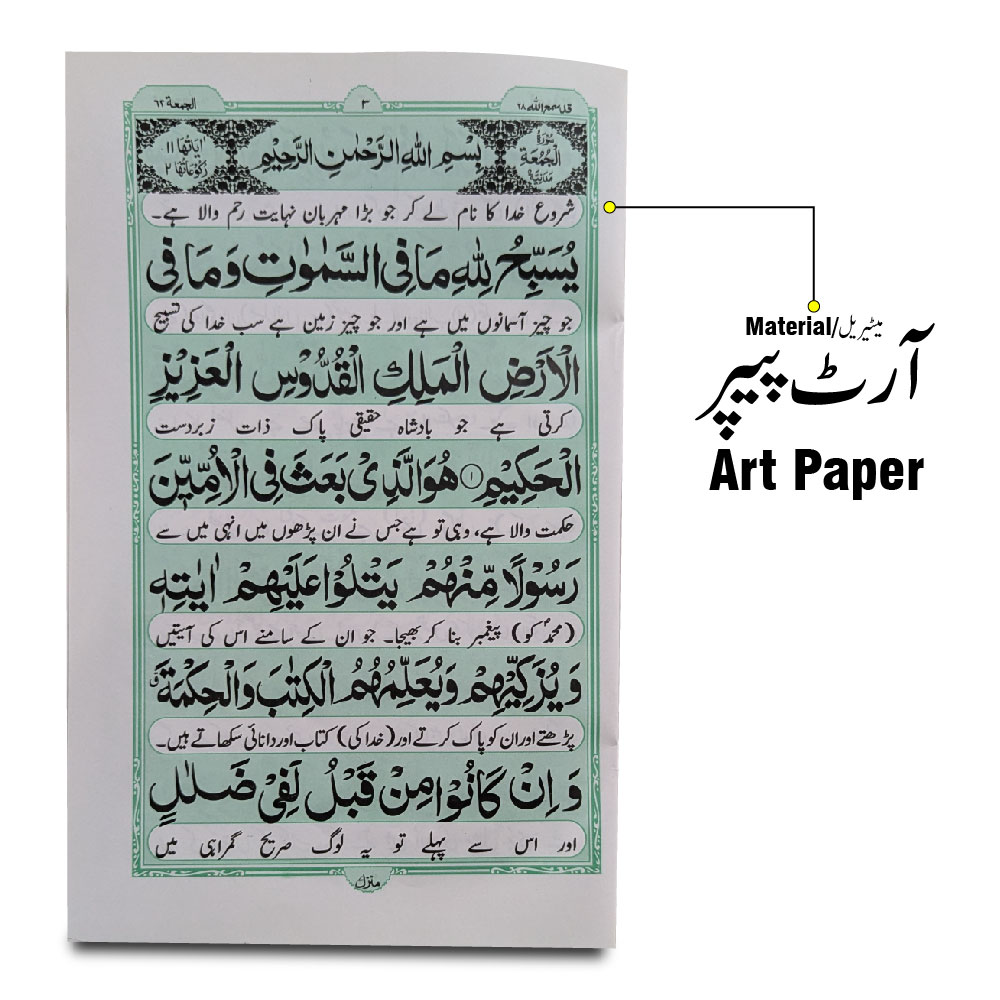 قد سمع اللہ ٢٨
٣
الجمعة ٦٢
سُوْرَةُ الْجُمُعَةِ مَدَنِيَّةٌ
بِسْمِ اللهِ الرَّحْمٰنِ الرَّحِيْمِ
اٰيَاتُهَا ١١ رُكُوْعَاتُهَا ٢
شروع خدا کا نام لے کر جو بڑا مہربان نہایت رحم والا ہے۔
يُسَبِّحُ لِلّٰهِ مَا فِي السَّمٰوٰتِ وَمَا فِي
جو چیز آسمانوں میں ہے اور جو چیز زمین ہے سب خدا کی تسبیح
الْاَرْضِ الْمَلِكِ الْقُدُّوْسِ الْعَزِيْزِ
کرتی ہے جو بادشاہ حقیقی پاک ذات زبردست
الْحَكِيْمِ ١ هُوَ الَّذِيْ بَعَثَ فِي الْاُمِّيّٖنَ
حکمت والا ہے، وہی تو ہے جس نے ان پڑھوں میں انہی میں سے
رَسُوْلًا مِّنْهُمْ يَتْلُوْا عَلَيْهِمْ اٰيٰتِهٖ
(محمدؐ کو) پیغمبر بنا کر بھیجا۔ جو ان کے سامنے اس کی آیتیں
وَيُزَكِّيْهِمْ وَيُعَلِّمُهُمُ الْكِتٰبَ وَالْحِكْمَةَ ۗ
پڑھتے اور ان کو پاک کرتے اور (خدا کی) کتاب اور دانائی سکھاتے ہیں۔
وَاِنْ كَانُوْا مِنْ قَبْلُ لَفِيْ ضَلٰلٍ
اور اس سے پہلے تو یہ لوگ صریح گمراہی میں
Material/میٹیریل
آرٹ پیپر
Art Paper